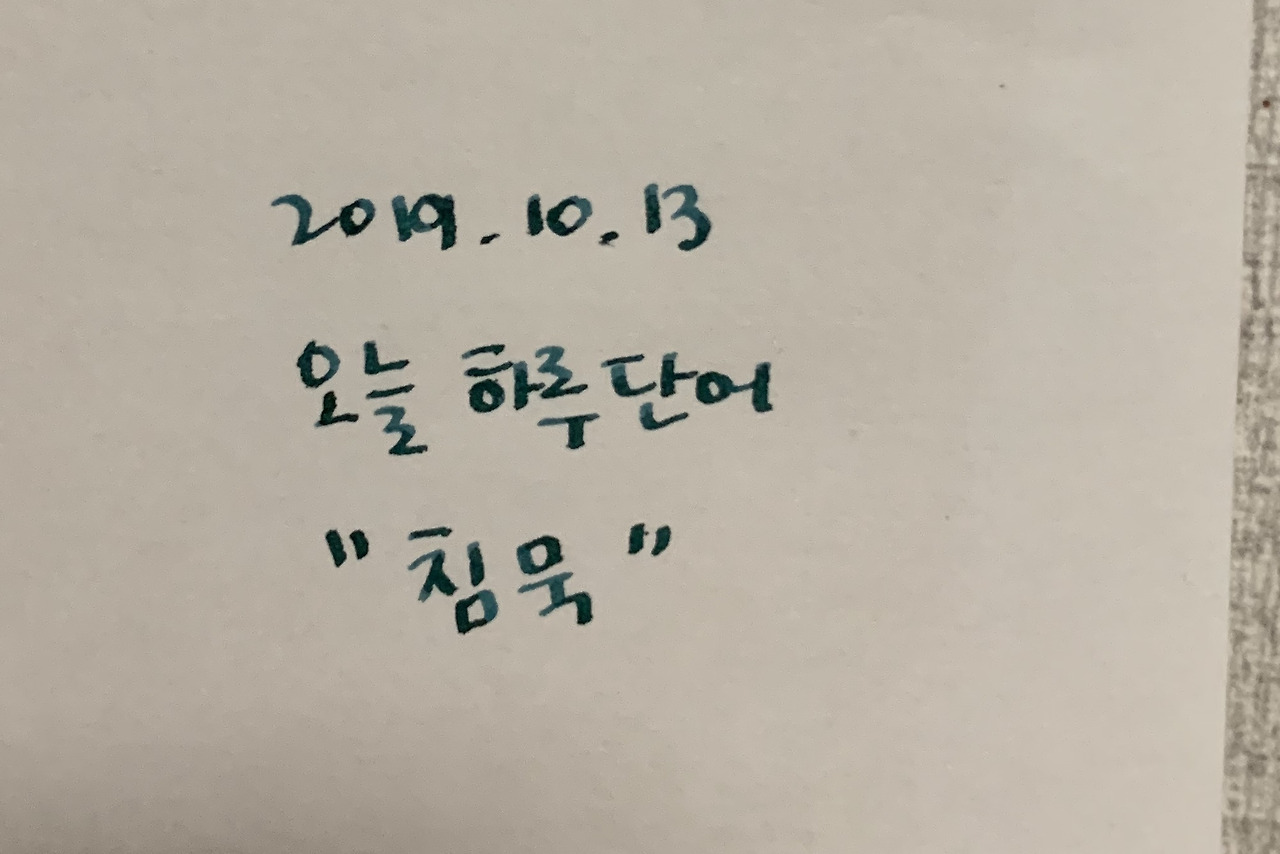 2019. 10. 13
오늘 하루 단어
"침묵"